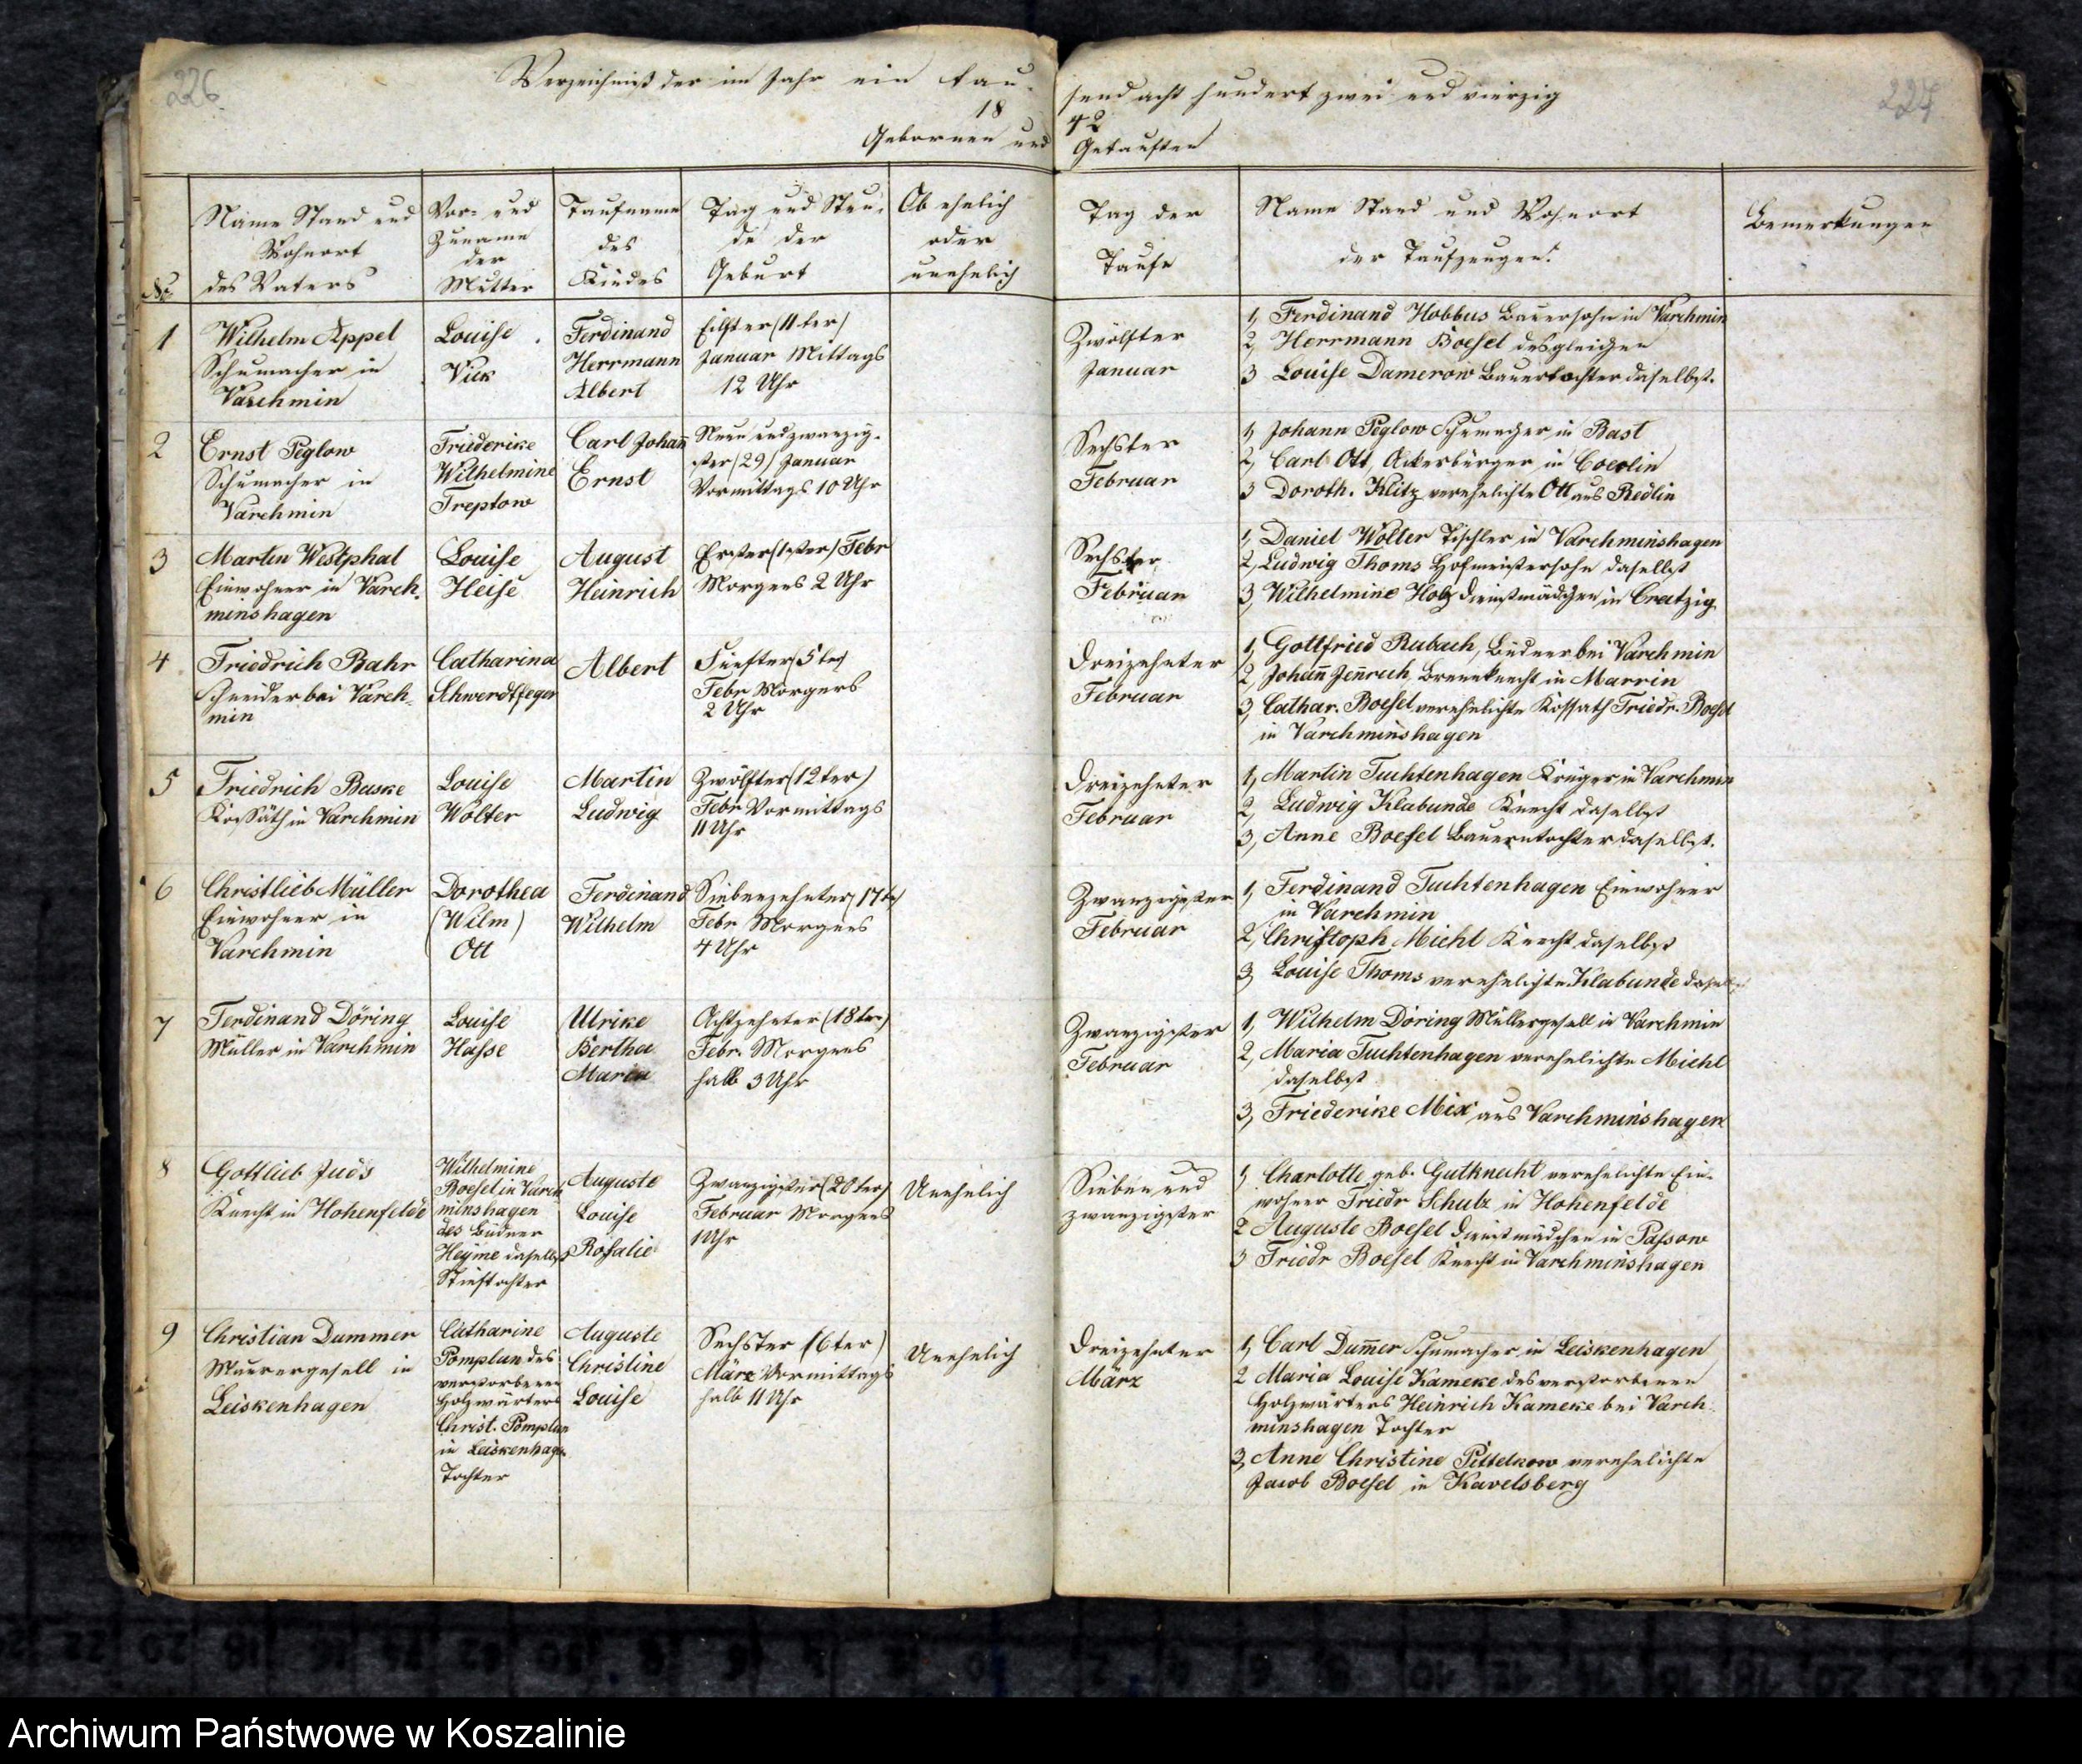 226
Verzeichniß der im Jahr ein tau-
18
Gebornen und
No
Name Stand und
Wohnort
des Vaters
Vor- und
Zuname
der
Mutter
Taufname
des
Kindes
Tag und Stun-
de der
Geburt
Ob ehelich
oder
unehelich
1
Wilhelm Appel
Schumacher in
Varchmin
Louise
Vick
Ferdinand
Herrmann
Albert
Eilfter (11ter)
Januar Mittags
12 Uhr
2
Ernst Peglow
Schumacher in
Varchmin
Friederike
Wilhelmine
Treptow
Carl Johañ
Ernst
Neun und zwanzig-
ster (29) Januar
Vormittags 10 Uhr
3
Martin Westphal
Einwohner in Varch-
minshagen
Louise
Heise
August
Heinrich
Erster (1ster) Febr
Morgens 2 Uhr
4
Friedrich Bahr
Schneider bei Varch-
min
Catharina
Schwerdtfeger
Albert
Fünfter (5ter)
Febr Morgens
2 Uhr
5
Friedrich Buske
Kossäth in Varchmin
Louise
Wolter
Martin
Ludwig
Zwölfter (12ter)
Febr Vormittags
11 Uhr
6
Christlieb Müller
Einwohner in
Varchmin
Dorothea
(Wilm)
Ott
Ferdinand
Wilhelm
Siebenzehnter (17ter)
Febr Morgens
4 Uhr
7
Ferdinand Döring
Müller in Varchmin
Louise
Hasse
Ulrike
Bertha
Maria
Achtzehnter (18ter)
Febr. Morgens
halb 3 Uhr
8
Gottlieb Juds
Knecht in Hohenfelde
Wilhelmine
Boesel in Varch
minshagen
des Büdner
Heyme daselbst
Stieftochter
Auguste
Louise
Rosalie
Zwanzigster (20ter)
Februar Morgens
1 Uhr
Unehelich
9
Christian Dummer
Maurergesell in
Leiskenhagen
Catharine
Pomplun des
verstorbenen
Holzwärters
Christ. Pomplun
in Leiskenhagen
Tochter
Auguste
Christine
Louise
Sechster (6ter)
März Vormittags
halb 11 Uhr
Unehelich
227
send acht hundert zwei und vierzig
42
Getauften
Tag der
Taufe
Name Stand und Wohnort
der Taufzeugen.
Bemerkungen
Zwölfter
Januar
1, Ferdinand Hobbus Bauersohn in Varchmin
2, Herrmann Boesel desgleichen
3 Louise Damerow Bauertochter daselbst.
Sechster
Februar
1, Johann Peglow Schumacher in Bast
2, Carl Ott, Ackerbürger in Coeslin
3 Doroth. Klitz verehelichte Ott aus Redlin
Sechster
Februar
1, Daniel Wolter Tischler in Varchminshagen
2, Ludwig Thoms Hofmeistersohn daselbst
3, Wilhelmine Holz Dienstmädchen in Cratzig
Dreizehnter
Februar
1, Gottfried Rubach, Büdner bei Varchmin
2, Johañ Jeñrich, Brennknecht in Marrin
3, Cathar. Boesel verehelichte Kossath Friedr. Boesel
in Varchminshagen
Dreizehnter
Februar
1, Martin Tuchtenhagen Krüger in Varchmin
2, Ludwig Klabunde Knecht daselbst
3, Anne Boesel Bauerntochter daselbst.
Zwanzigster
Februar
1, Ferdinand Tuchtenhagen Einwohner
in Varchmin
2, Christoph Miehl Knecht daselbst
3, Louise Thoms verehelichte Klabunde daselbst
Zwanzigster
Februar
1, Wilhelm Döring Müllergesell in Varchmin
2, Maria Tuchtenhagen verehelichte Miehl
daselbst
3, Friederike Mix aus Varchminshagen
Sieben und
zwanzigster
1, Charlotte geb. Gutknecht verehelichte Ein-
wohner Friedr Schulz in Hohenfelde
2 Auguste Boesel Dienstmädchen in Passow
3 Friedr Boesel Knecht in Varchminshagen
Dreizehnter
März
1, Carl Dum̃er Schumacher in Leiskenhagen
2 Maria Louise Kameke des verstorbenen
Holzwärters Heinrich Kameke bei Varch-
minshagen Tochter
3, Anne Christine Pittelkow verehelichte
Jacob Boesel in Kavelsberg
Archiwum Państwowe w Koszalinie